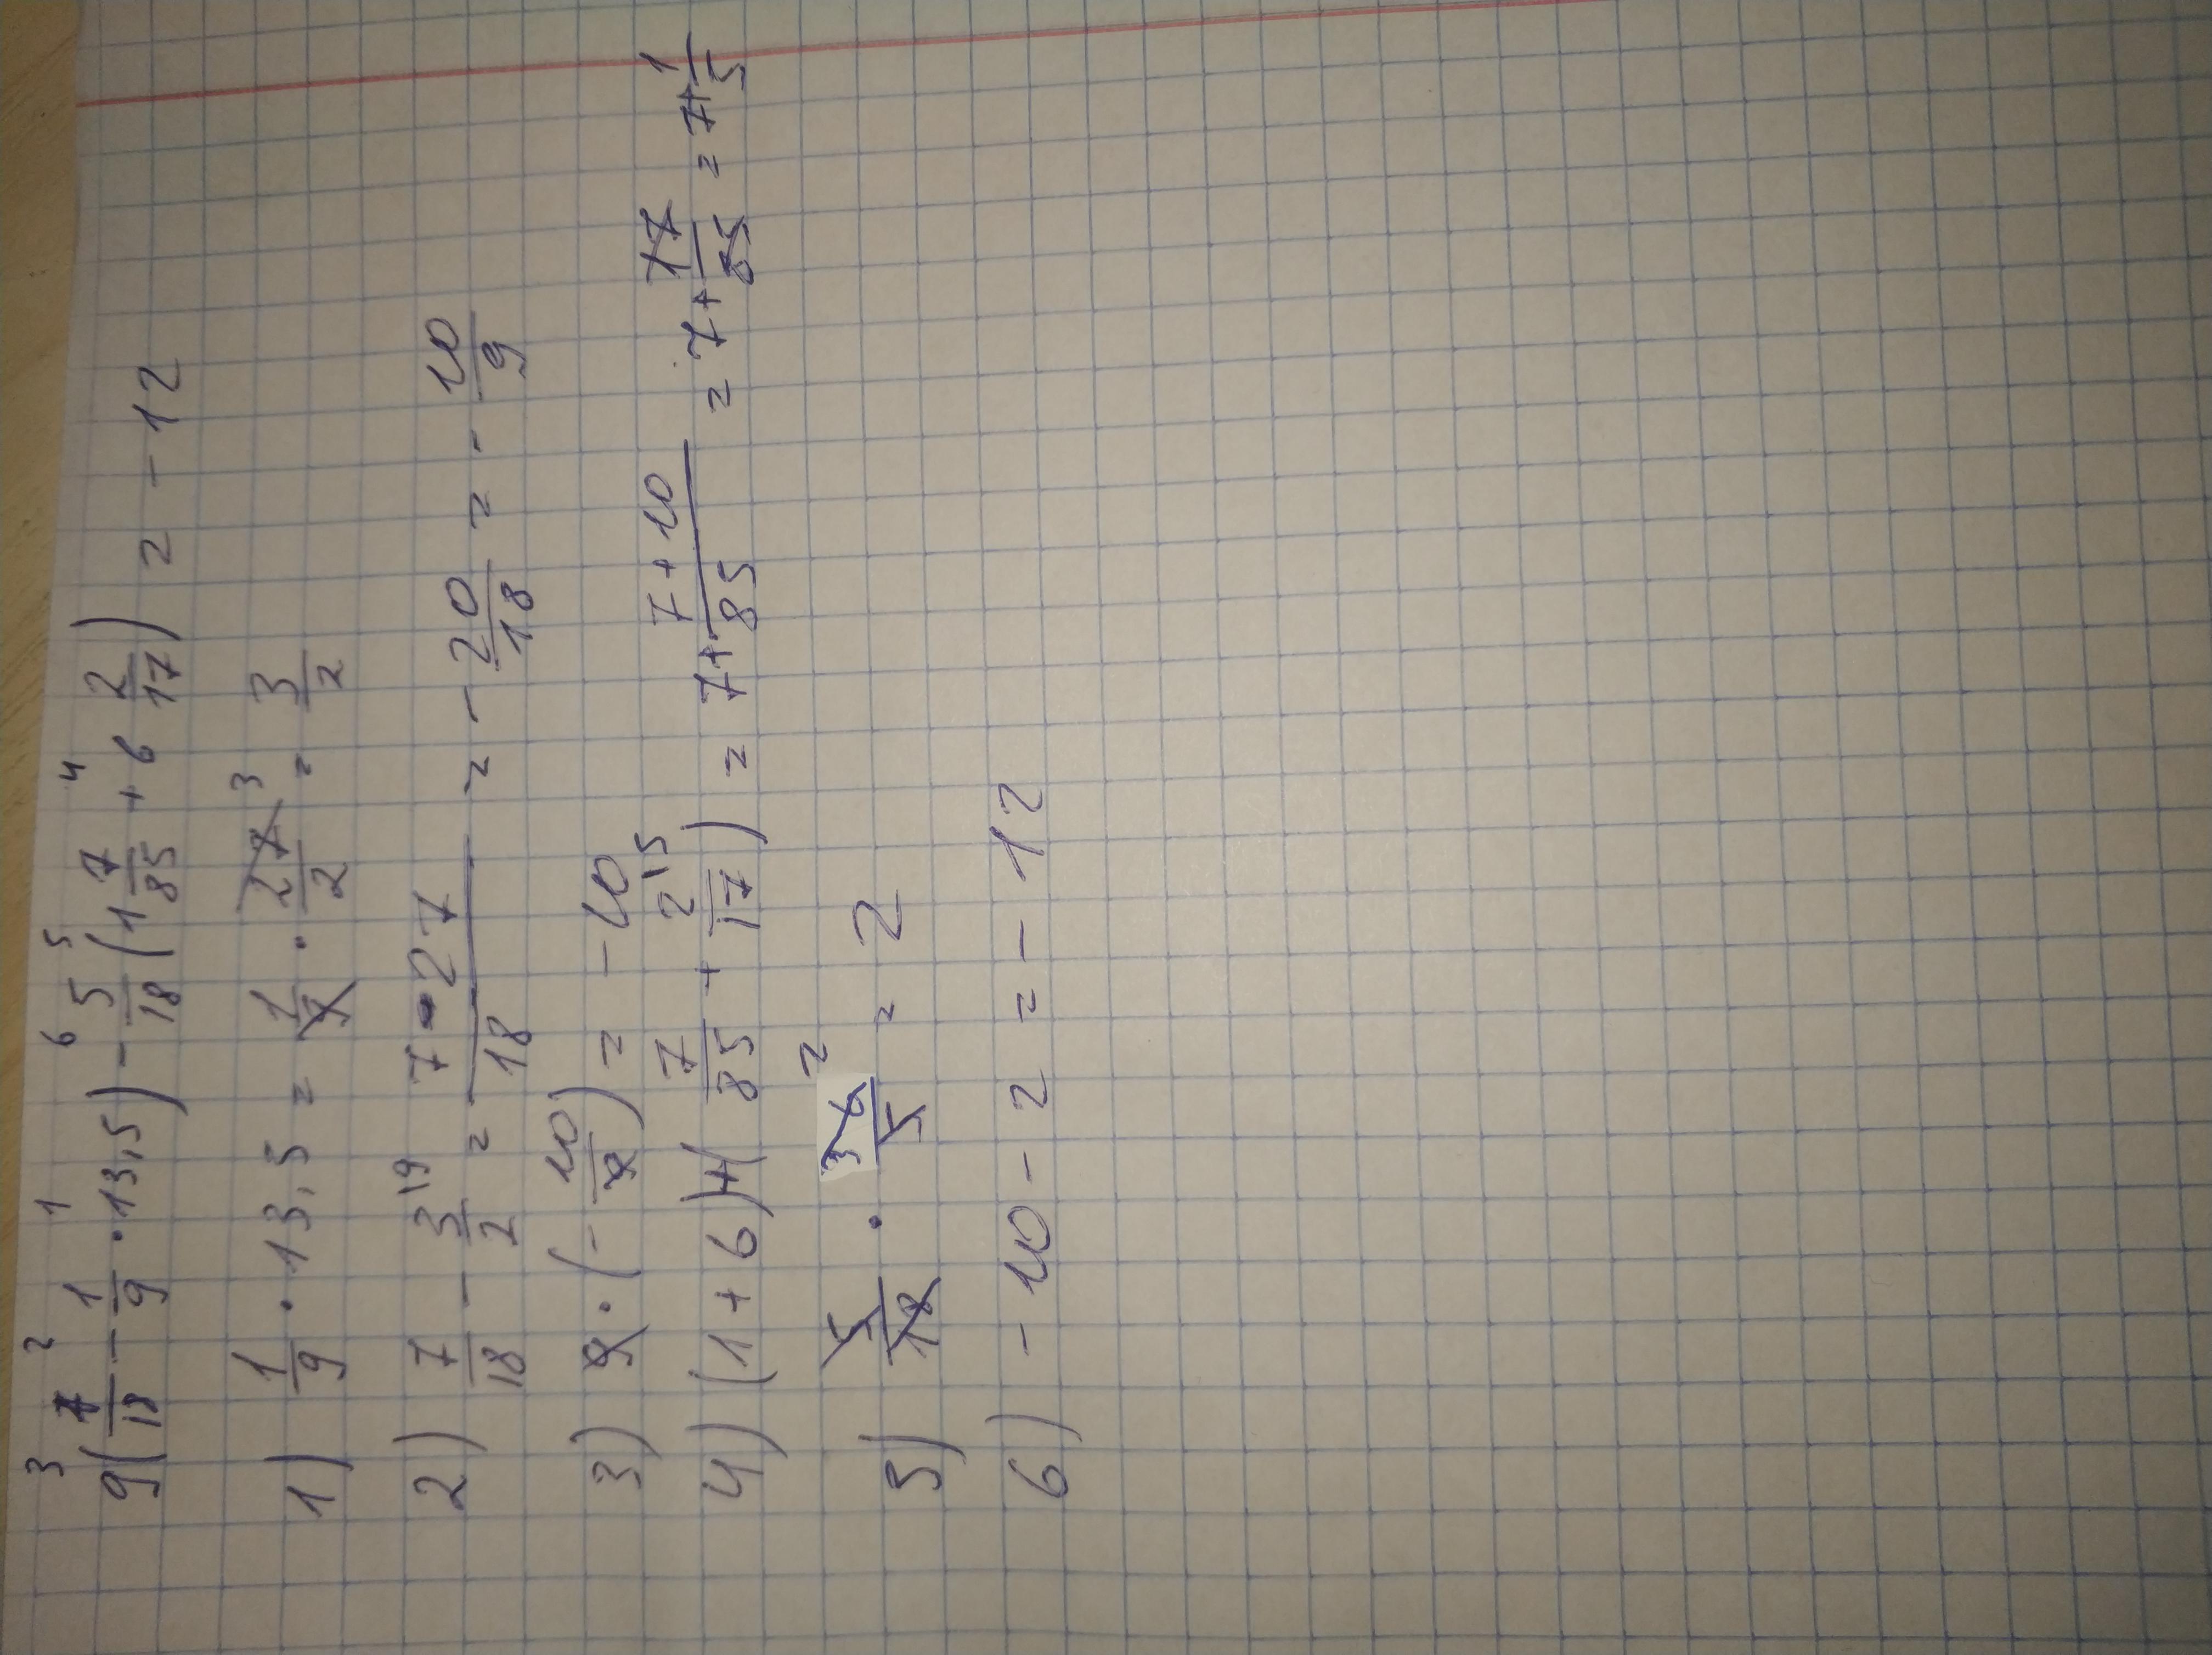 9(7/18 - 1/9 · 13,5) - 5/18 (1 7/85 + 6 2/17) = -12
1) 1/9 · 13,5 = 1/9 · 27/2 = 3/2
2) 7/18 - 3/2 = (7-27)/18 = - 20/18 = - 10/9
3) 9 · (- 10/9) = -10
4) (1+6)+(7/85 + 2/17) = 7+ (7+10)/85 = 7+ 17/85 = 7+ 1/5
5) 5/18 · 36/5 = 2
6) -10 - 2 = -12